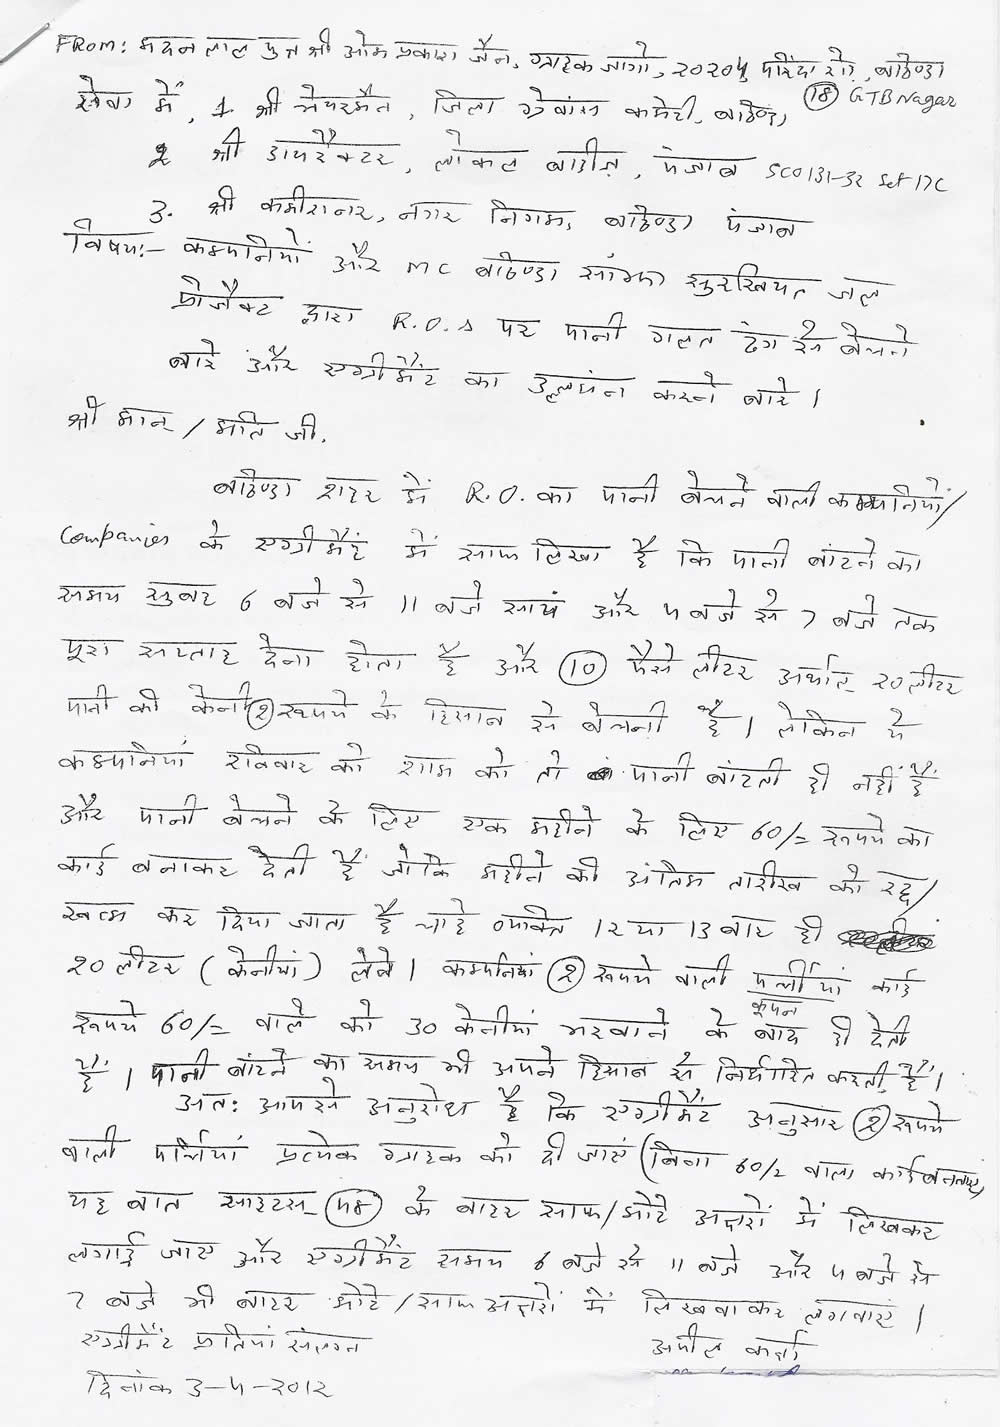 FROM: मदन लाल पुत्र श्री ओम प्रकाश जैन, ग्राहक जागो, 20204, परिंदा रोड, बठिण्डा
सेवा में, 1 श्री चेयरमैन, जिला ग्रेवांस कमेटी, बठिण्डा (18) GTB Nagar
2 श्री डायरैक्टर, लोकल बाडीज़, पंजाब SCO 131-32 Sec 17C
3. श्री कमीशनर, नगर निगम, बठिण्डा पंजाब
विषय:- कम्पनियों और MC बठिण्डा सांझा सुरखियत जल
प्रोजैक्ट द्वारा R.O.s पर पानी गलत ढंग से बेचने
बारे और एग्रीमैंट का उल्लघंन करने बारे ।
श्री मान् / मति जी.
बठिण्डा शहर में R.O. का पानी बेचने वाली कम्पनियों/
Companies के एग्रीमैंट में साफ लिखा है कि पानी बांटने का
समय सुबह 6 बजे से 11 बजे सायं और 4 बजे से 7 बजे तक
पूरा सप्ताह देना होता है और (10) पैसे लीटर अर्थात् 20 लीटर
पानी की केनी (2) रूपये के हिसाब से बेचनी है । लेकिन ये
कम्पनियां रविवार को शाम को तो पानी बांटती ही नहीं हैं
और पानी बेचने के लिए एक महीने के लिए 60/= रूपये का
कार्ड बनाकर देती हैं जोकि महीने की अंतिम तारीख को रद्द/
खत्म कर दिया जाता है चाहे व्यक्ति 12 या 13 बार ही
20 लीटर (केनीयां) लेवे । कम्पनियां (2) रूपये वाली पर्चीयां कार्ड
कूपन
रूपये 60/= वाले को 30 केनीयां भरवाने के बाद ही देती
हैं । पानी बांटने का समय भी अपने हिसाब से निर्धारित करती हैं ।
अतः आपसे अनुरोध है कि एग्रीमैंट अनुसार (2) रूपये
वाली पर्चियां प्रत्येक ग्राहक को दी जाएं (बिना 60/= वाला कार्ड बनवाए)
यह बात साइटस (48) के बाहर साफ/मोटे अक्षरों में लिखकर
लगाई जाए और एग्रीमैंट समय 6 बजे से 11 बजे और 4 बजे से
7 बजे भी बाहर मोटे/साफ अक्षरों में लिखवाकर लगवाएं ।
एग्रीमैंट प्रतियां संलग्न अपील कर्त्ता
दिनांक 3-4-2012